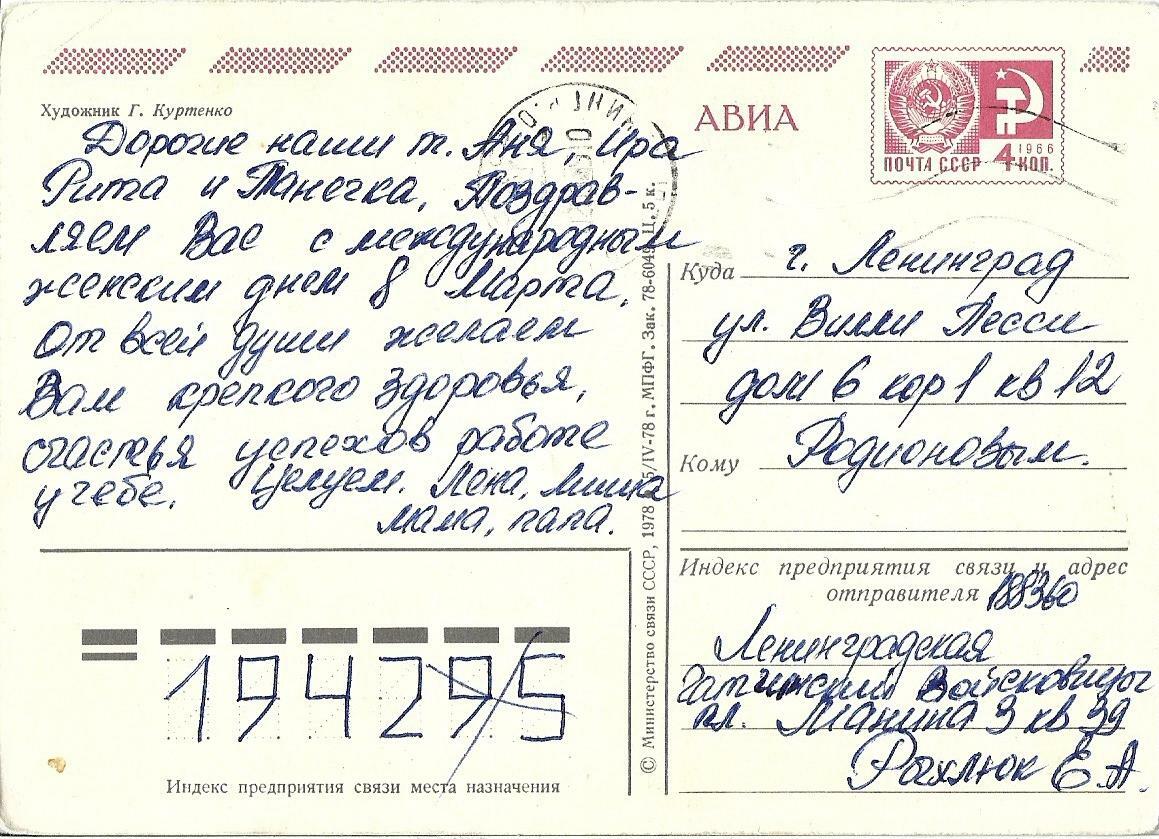 Художник Г. Куртенко
АВИА
ПОЧТА СССР
1966
4 КОП.
Дорогие наши т. Аня, Ира
Рита и Танечка, Поздрав-
ляем Вас с международным
женским днем 8 Марта.
От всей души желаем
Вам крепкого здоровья,
счастья успехов работе
учебе. Целуем. Лена, Мишка
мама, папа.
Куда г. Ленинград
ул. Вилли Песси
дом 6 кор 1 кв 12
Кому Родионовым.
© Министерство связи СССР, 1978 5/IV-78 г. МПФГ. Зак. 78-6049. Ц. 5 к.
Индекс предприятия связи и адрес
отправителя 188360
Ленинградская
Гатчинский Войсковицы
пл. Манина 3 кв 39
Рахлюк Е. А.
194295
Индекс предприятия связи места назначения